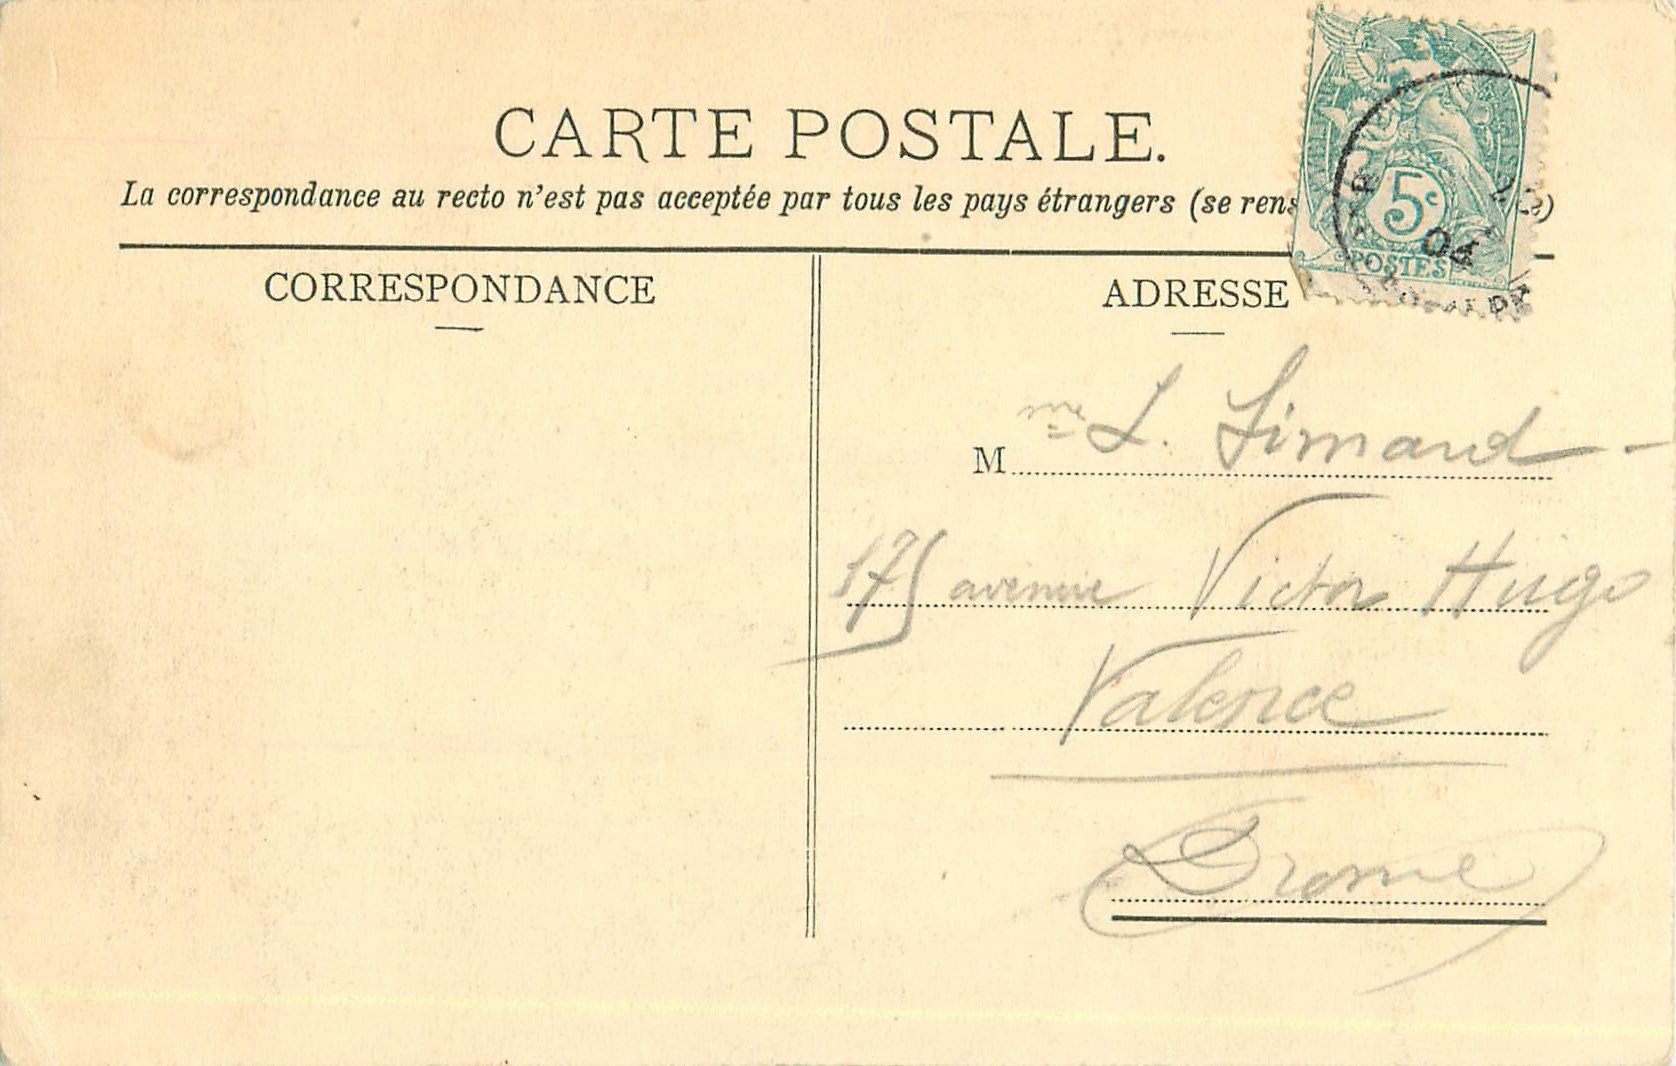 CARTE POSTALE.
La correspondance au recto n'est pas acceptée par tous les pays étrangers (se rens
5c
04
POSTES
CORRESPONDANCE
ADRESSE
M me L. Simand
175 avenue Victor Hugo
Valence
Drome